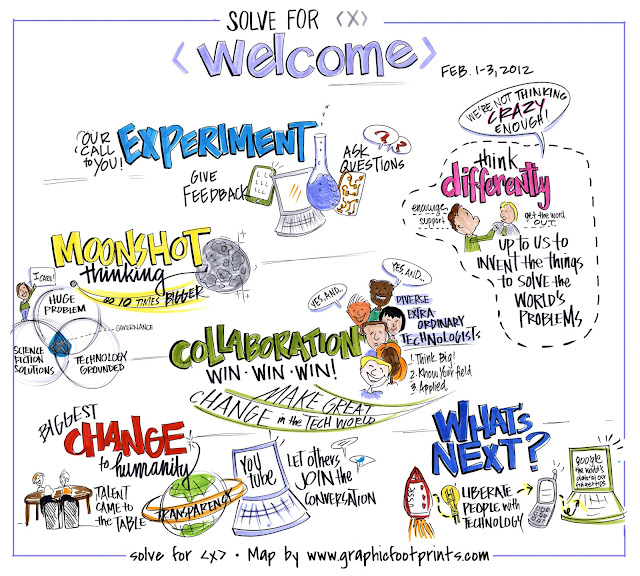 SOLVE FOR <X>
<welcome>
FEB. 1-3, 2012
OUR
CALL
to YOU!
EXPERIMENT
GIVE
FEEDBACK
ASK
QUESTIONS
? ? ?
WE'RE NOT THINKING
CRAZY
ENOUGH!
think
differently
encourage
support
get the word
OUT
UP to US to
INVENT the things
to SOLVE the
WORLD'S
PROBLEMS
MOONSHOT
thinking
GO 10 TIMES BIGGER
I CARE!
HUGE
PROBLEM
GOVERNANCE
SCIENCE
FICTION
SOLUTIONS
TECHNOLOGY
GROUNDED
YES AND..
YES AND..
DIVERSE
EXTRA
ORDINARY
TECHNOLOGISTS
1. Think Big!
2. Know Your field
3. Applied
COLLABORATION
WIN · WIN · WIN!
MAKE GREAT
CHANGE in the TECH WORLD
BIGGEST
CHANGE
to humanity
TALENT
CAME to
the TABLE
TRANSPARENCY
YOU
tube
LET others
JOIN the
CONVERSATION
WHAT'S
NEXT?
USSR
LIBERATE
PEOPLE with
TECHNOLOGY
google
the world's
fingertips
solve for <x> · Map by www.graphicfootprints.com